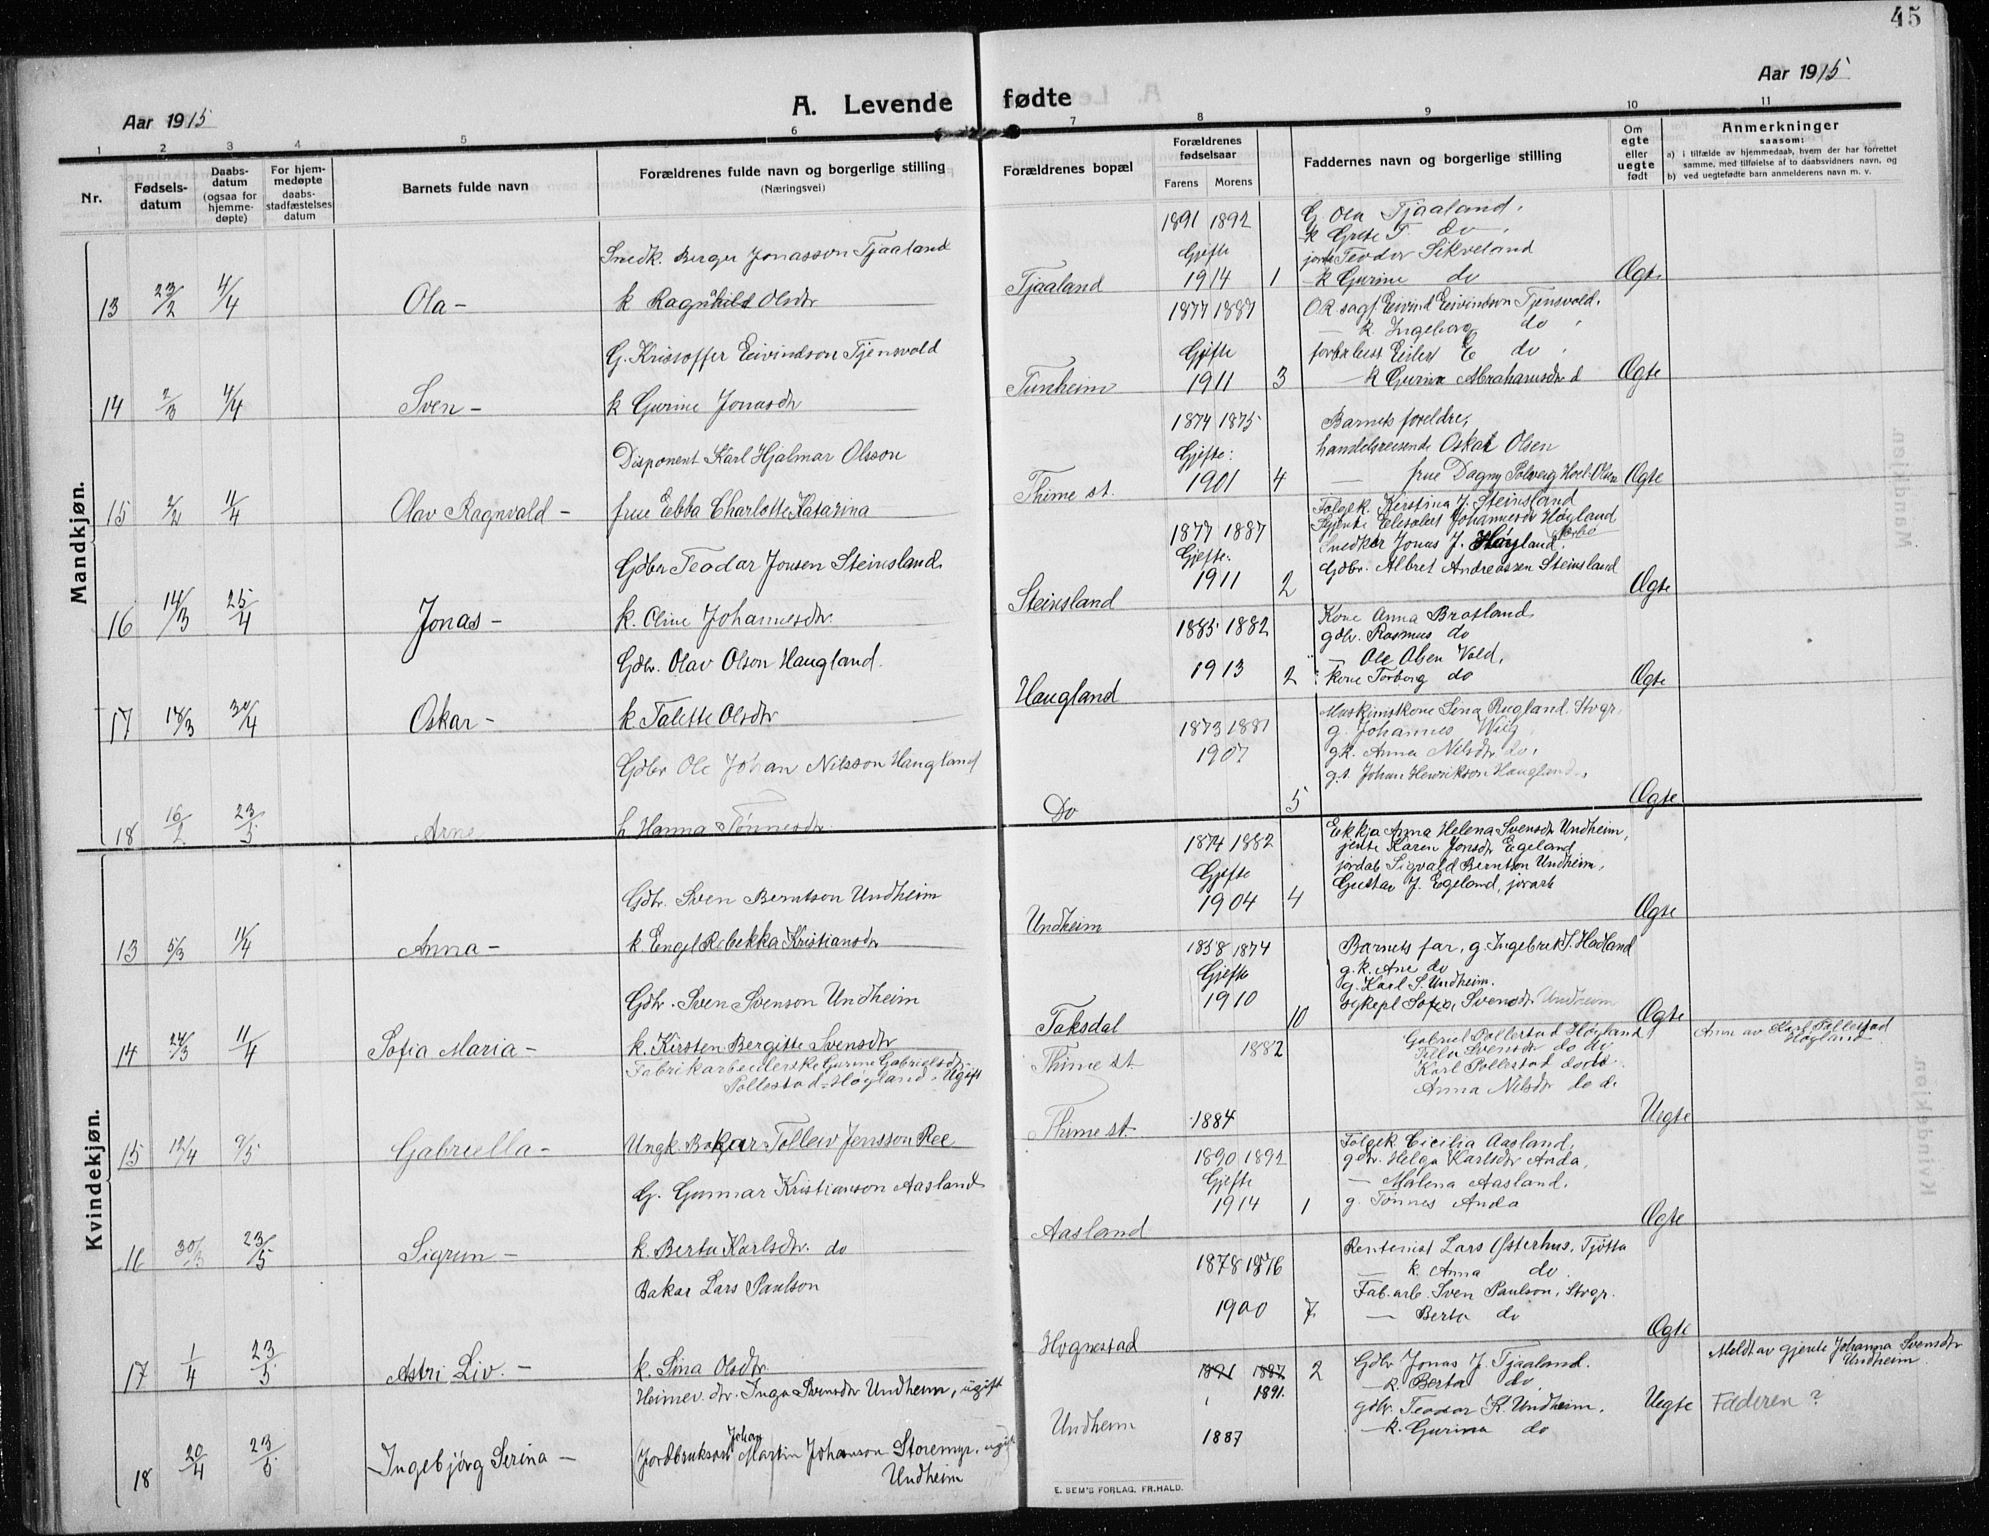 45
Aar 1915
A. Levende fødte
Aar 1915
1 2 3 4 5 6 7 8 9 10 11
Nr.
Fødsels-
datum
Daabs-
datum
(ogsaa for
hjemme-
døpte)
For hjem-
medøpte
daabs-
stadfæstelses
datum
Barnets fulde navn
Forældrenes fulde navn og borgerlige stilling
(Næringsvei)
Forældrenes bopæl
Forældrenes
fødselsaar
Farens Morens
Faddernes navn og borgerlige stilling
Om
egte
eller
uegte
født
Anmerkninger
saasom:
a) i tilfælde av hjemmedaab, hvem der har forrettet
samme, med tilføielse af to daabsvidners navn, og
b) ved uegtefødte barn anmelderens navn m. v.
Mandkjøn.
13 23/2 4/4 Ola –
Snedk. Berger Jonasson Tjaaland
k Ragnhild Olsdtr
Tjaaland
1891 1892
Gjefte
1914 1
G. Ola Tjaaland,
k Grete T do
Teodor Sikveland
k Gurine do
Ogte
14 2/3 4/4 Sven –
G. Kristoffer Eivindson Tjensvold
k Gurine Jonasdtr
Tunheim
1877 1887
Gjefte
1911 3
Eivind Eivindson Tjensvold.
— k. Ingeborg do
Eilert E do
— k Gurine Abrahamsdtr d
Ogte
15 2/2 11/4 Olav Ragnvald –
Disponent Karl Hjalmar Olsson
frue Ebba Charlotte Katarina
Thime st.
1874 1875
Gjefte:
1901 4
Barnets foreldre,
handelsreisende Oskar Olsen
— frue Dagny Solveig Hoel-Olsen
Ogte
16 14/3 25/4 Jonas –
Gdbr Teodor Jonsen Steinsland
k. Oline Johannesdtr.
Steinsland
1877 1887
Gjefte:
1911 2
Folgek. Kerstina J. Steinsland
Gjente Elisabet Johannesdr Høyland
Snedker Jonas J. Høyland
Gdbr. Albret Andreassen Steinsland
Ogte
17 18/3 30/4 Oskar –
Gdbr. Olav Olson Haugland.
k Talette Olsdtr
Haugland
1885 1882
1913 2
Kone Anna Bratland
gdbr. Rasmus do
— Ole Olsen Vold,
kone Torborg do
Ogte
18 16/2 23/5 Arne
Gdbr Ole Johan Nilsson Haugland
h Hanna Tønnesdtr
Do
1873 1881
1907
5
Maskinistkone Sina Rugland. Stvgr.
g. Johannes Wiig
gk. Anna Nilsdtr do,
Johan Henrikson Haugland.
Ogte
Kvindekjøn.
13 5/3 11/4 Anna –
Gdbr. Sven Berntson Undheim
k Engel Rebekka Kristiansdtr
Undheim
1874 1882
Gjefte
1904 4
Ekkja Anna Helena Svensdtr Undheim,
jente Karen Jonsdtr Egeland
Sigvald Berntson Undheim,
Gustav J. Egeland,
Ogte
14 24/3 11/4 Sofia Maria –
Gdbr. Sven Svenson Undheim
k. Kirsten Bergitte Svensdtr
Taksdal
1858 1874
Gjefte
1910
10
Barnets far, g. Ingebret S. Hadland
g. k. Ane do
g. Karl S. Undheim.
sykepl Sofia Svensdtr Undheim
Ogte
15 12/4 9/5 Gabriella –
Fabrikarbeiderske Gurine Gabrielsdtr
Pollestad-Høyland. Ugift
Ungk. Baker Tollev Jensson Ree
Thime st
Thime st.
1882
1884
Gabriel Pollestad Høyland
Svensdtr do do
Karl Pollestad do do
Anna Nilsdtr do d.
Uegte
Anm av Karl Pollestad
Høyland
16 30/3 23/5 Sigrun –
G. Gunnar Kristianson Aasland
k. Berta Karlsdtr. do
Aasland
1890 1892
Gjefte
1914 1
Folgek. Cicilia Aasland,
gdbr. Helga Karlsdtr Anda,
— Malena Aasland,
g. Tønnes Anda
Ogte
17 1/4 23/5 Astri Liv –
Bakar Lars Paulson
k. Sina Olsdtr
Hognestad
1878 1876
1900 7
Rentenist Lars Østerhus, Tjøtta
— k. Anna do
Fab.arb. Sven Paulson, Stvgr.
— Berta do
Ogte
18 20/4 23/5 Ingebjørg Serina –
Heimev. dtr. Inga Svensdtr Undheim, ugift
(Jordbrukson Johan Martin Johanson Storemyr, ugift
Undheim
Undheim
1891 1887 2
1891.
1887
Gdbr Jonas J. Tjaaland.
— k. Berta do
gdbr. Teodor K. Undheim,
— k. Gurina do
Uegte
Meldt av gjente Johanna Svensdtr
Undheim
Faderen?
E. SEM'S FORLAG, FR.HALD.